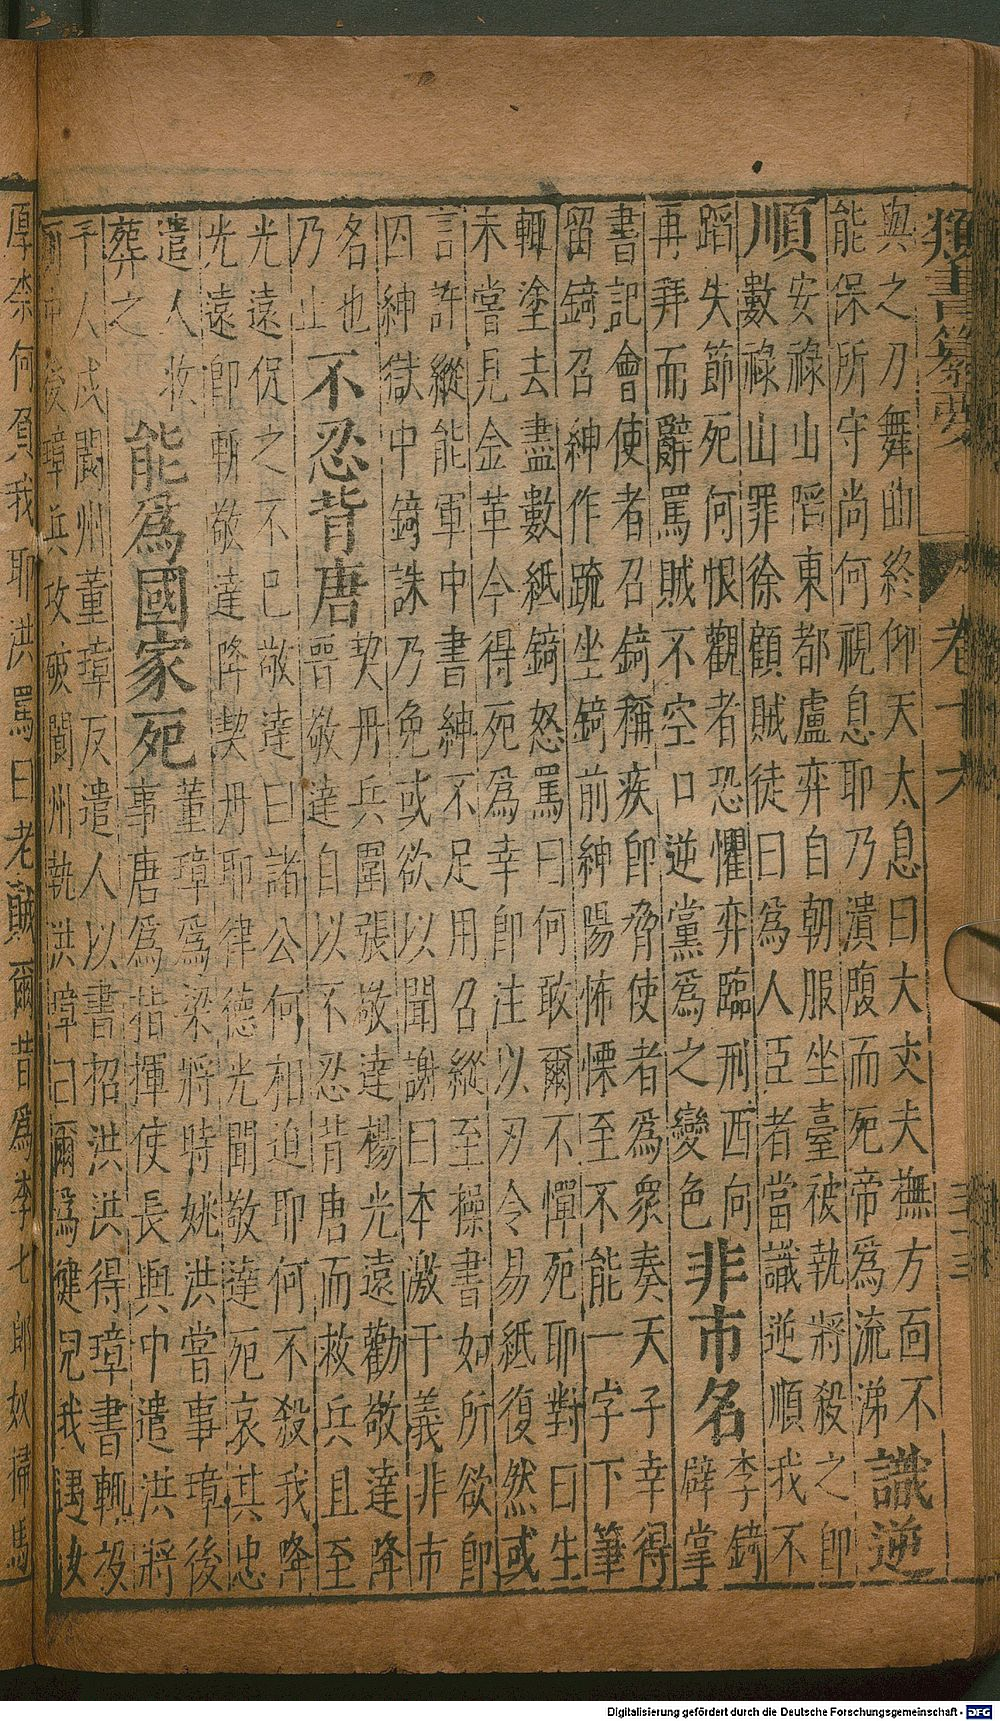 類書纂要 卷十六 三三
與之刀舞曲終仰天太息曰大丈夫撫方面不
能保所守尚何視息耶乃潰腹而死帝爲流涕
識逆
順
安祿山陷東都盧弈自朝服坐臺被執將殺之即
數祿山罪徐顧賊徒曰爲人臣者當識逆順我不
蹈失節死何恨觀者恐懼弈臨刑西向
再拜而辭罵賊不空口逆黨爲之變色
非市名
李錡
辟掌
書記會使者召錡稱疾卽脅使者爲衆奏天子幸得
留錡召紳作疏坐錡前紳陽怖慄至不能一字下筆
輒塗去盡數紙錡怒罵曰何敢爾不憚死耶對曰生
未嘗見金革今得死爲幸卽注以刃令易紙復然或
言許縱能軍中書紳不足用召縱至操書如所欲卽
囚紳獄中錡誅乃免或欲以聞謝曰本激于義非市
名也
乃止
不忍背唐
契丹兵圍張敬達楊光遠勸敬達降
晉敬達自以不忍背唐而救兵且至
光遠促之不已敬達曰諸公何相迫耶何不殺我降
光遠卽斬敬達降契丹耶律德光聞敬達死哀其忠
遣人收
葬之
能爲國家死
董璋爲梁將時姚洪嘗事璋後
事唐爲指揮使長興中遣洪將
千人戍閬州董璋反遣人以書招洪洪得璋書輒投
廁中後璋兵攻破閬州執洪璋曰爾爲健兒我遇汝
厚柰何負我耶洪罵曰老賊爾昔爲李七郎奴掃馬
Digitalisierung gefördert durch die Deutsche Forschungsgemeinschaft - DFG